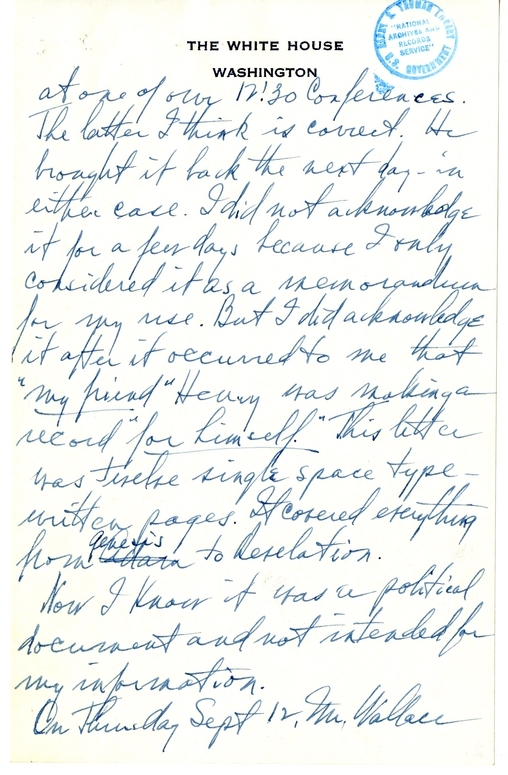 THE WHITE HOUSE
WASHINGTON
HARRY S. TRUMAN LIBRARY
"NATIONAL
ARCHIVES AND
RECORDS
SERVICE"
U.S. GOVERNMENT
at one of our 12:30 Conferences.
The latter I think is correct. He
brought it back the next day - in
either case. I did not acknowledge
it for a few days because I only
considered it as a memorandum
for my use. But I did acknowledge
it after it occurred to me that
"my friend" Henry was making a
record "for himself." This letter
was twelve single space type-
written pages. It covered everything
from genesis to Revelation.
Now I know it was a political
document and not intended for
my information.
On Thursday Sept 12, Mr. Wallace